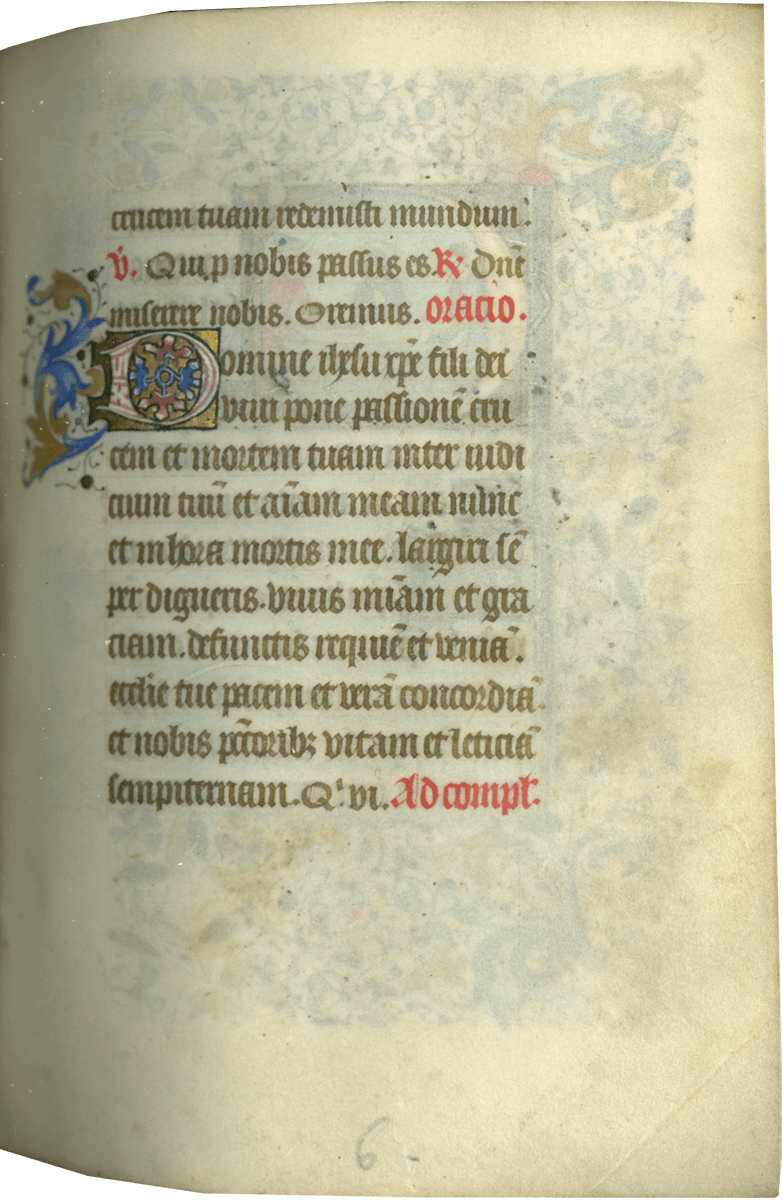 crucem tuam redemisti mundum.
V̇. Qui p nobis passus es. R̷ Dne̅
miserere nobis. Oremus. oracio.
Domine ihesu xp̅e fili dei
viui pone passione̅ cru
cem et mortem tuam inter iudi
cium tuu̅ et a̅i̅am meam nunc
et in hora mortis mee. largiri se̅
per digneris. viuis mi̅am et gra
ciam. defunctis requie̅ et venia̅.
eccl̅ie tue pacem et vera̅ concordia̅
et nobis pc̅toribꝫ vitam et leticia̅
sempiternam. Qⁱ vi. Ad compl̅.
6